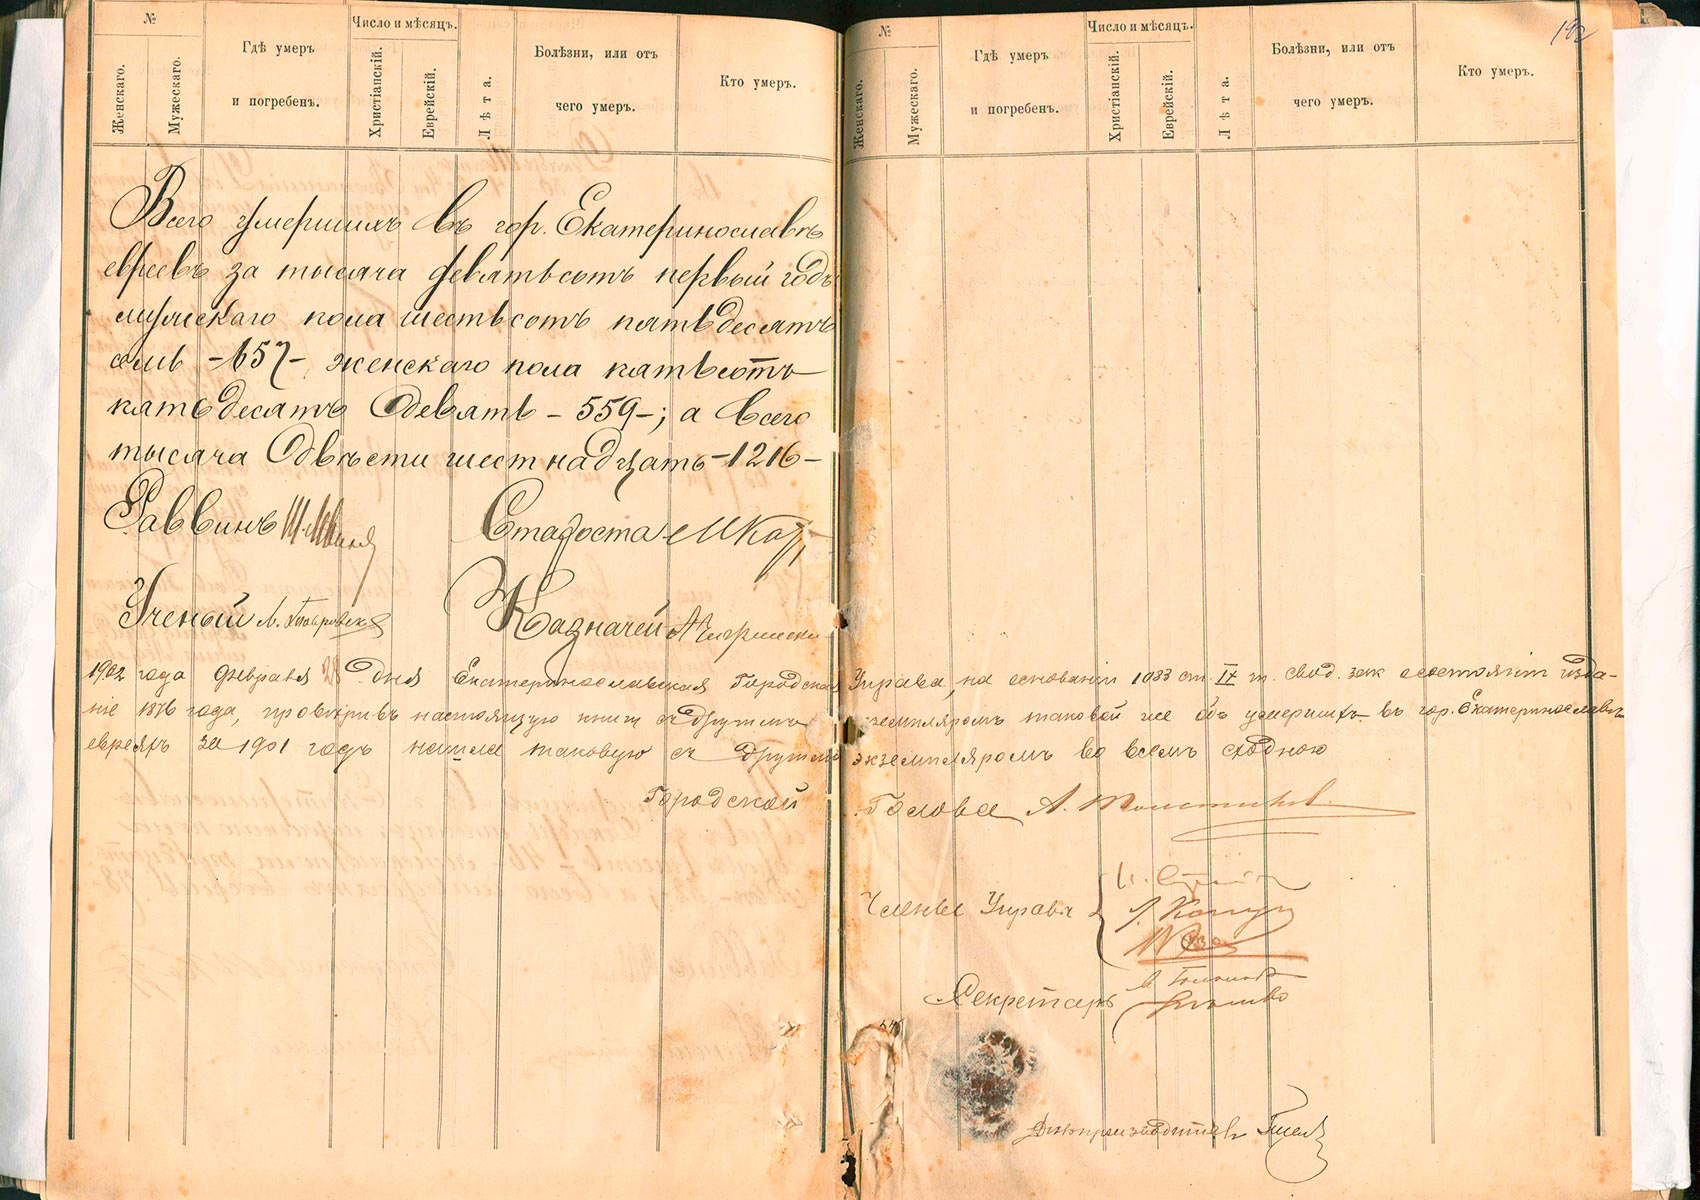 №
Женскаго.
Мужескаго.
Гдѣ умеръ
и погребенъ.
Число и мѣсяцъ.
Христіанскій.
Еврейскій.
Лѣта.
Болѣзни, или отъ
чего умеръ.
Кто умеръ.
Всего умершихъ въ гор. Екатеринославѣ
евреевъ за тысяча девятьсотъ первый годъ
мужскаго пола шестьсотъ пятьдесятъ
семь -657-, женскаго пола пятьсотъ
пятьдесятъ девять - 559-; а всего
тысяча двѣсти шестнадцать -1216-
Раввинъ Ш. Левинъ Староста
Ученый Казначей
№
Женскаго.
Мужескаго.
Гдѣ умеръ
и погребенъ.
Число и мѣсяцъ.
Христіанскій.
Еврейскій.
Лѣта.
Болѣзни, или отъ
чего умеръ.
Кто умеръ.
192
1902 года февраля 28 дня Екатеринославская Городская Управа, на основаніи 1083 ст. IX т. свод. зак о состояніи изда-
ніе 1876 года, провѣривъ настоящую книгу съ другимъ экземпляромъ таковой же объ умершихъ въ гор. Екатеринославѣ
евреяхъ за 1901 годъ нашла таковую съ другимъ экземпляромъ во всемъ сходною
Городской Голова А. Толстиковъ
Члены Управы
Секретарь
Дѣлопроизводитель